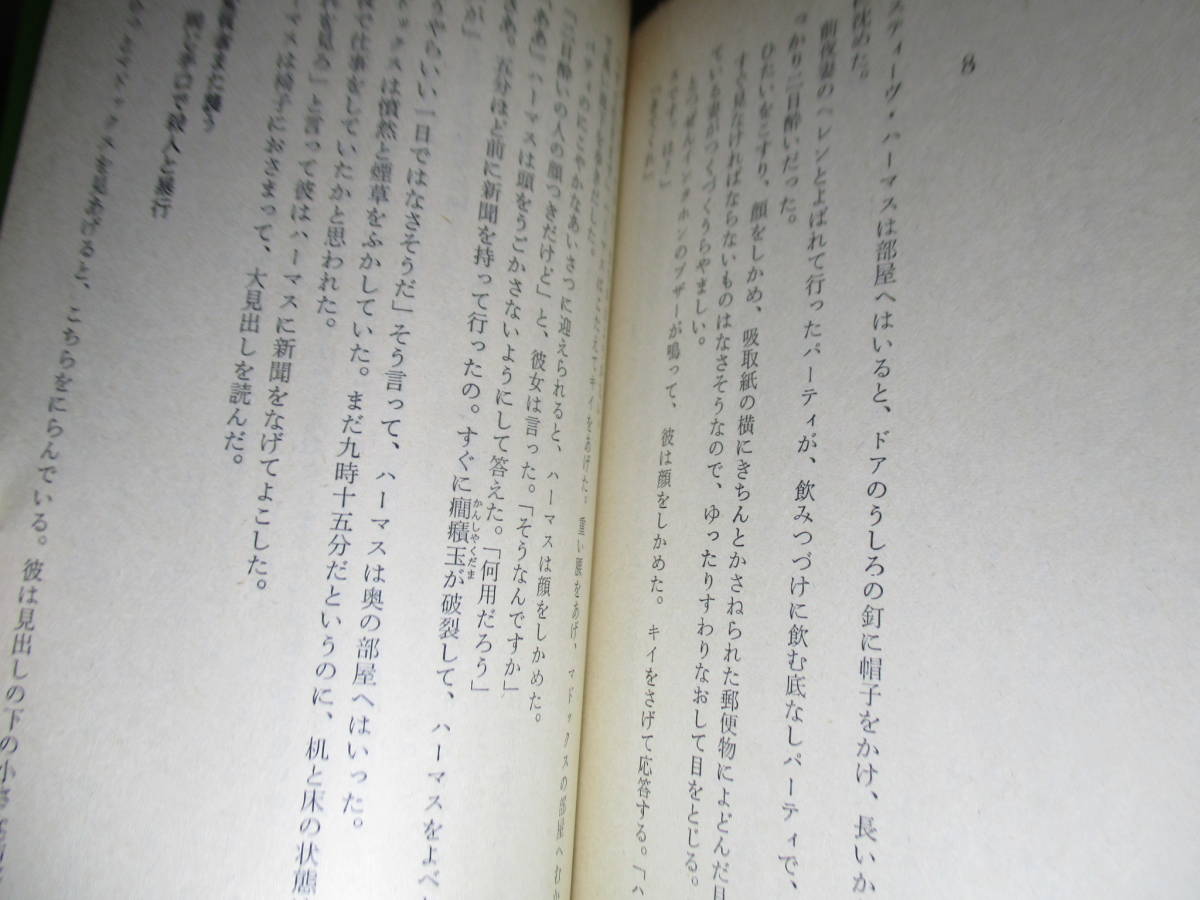 8
スティーヴ・ハーマスは部屋へはいると、ドアのうしろの釘に帽子をかけ、長いか
沈めた。
前夜妻のヘレンとよばれて行ったパーティが、飲みつづけに飲む底なしパーティで、
っかり二日酔いだった。
ひたいをこすり、顔をしかめ、吸取紙の横にきちんとかさねられた郵便物によどんだ目
すぐ見なければならないものはなさそうなので、ゆったりすわりなおして目をとじる。
ていも妻がつくづくうらやましい。
とつぜんインタホンのブザーが鳴って、彼は顔をしかめた。キイをさげて応答する。「ハ
スです、は?」
「きてくれ」
こたえてキイをあげた。重い腰をあげ、マドックスの部屋へむか
きだした。
パティのにこやかなあいさつに迎えられると、ハーマスは顔をしかめた。
「二日酔いの人の顔つきだけど」と、彼女は言った。「そうなんですか」
「ああ」ハーマスは頭をうごかさないようにして答えた。「何用だろう」
さあ。五分ほど前に新聞を持って行ったの。すぐに癇癪玉が破裂して、ハーマスをよべ
が」
うやらいい一日ではなさそうだ」そう言って、ハーマスは奥の部屋へはいった。
ックスは憤然と煙草をふかしていた。まだ九時十五分だというのに、机と床の状態
夜で仕事をしていたかと思われた。
を見ろ」と言って彼はハーマスに新聞をなげてよこした。
マスは椅子におさまって、大見出しを読んだ。
また襲う
殺人と暴行
ックスを見あげると、こちらをにらんでいる。彼は見出しの下の小さな